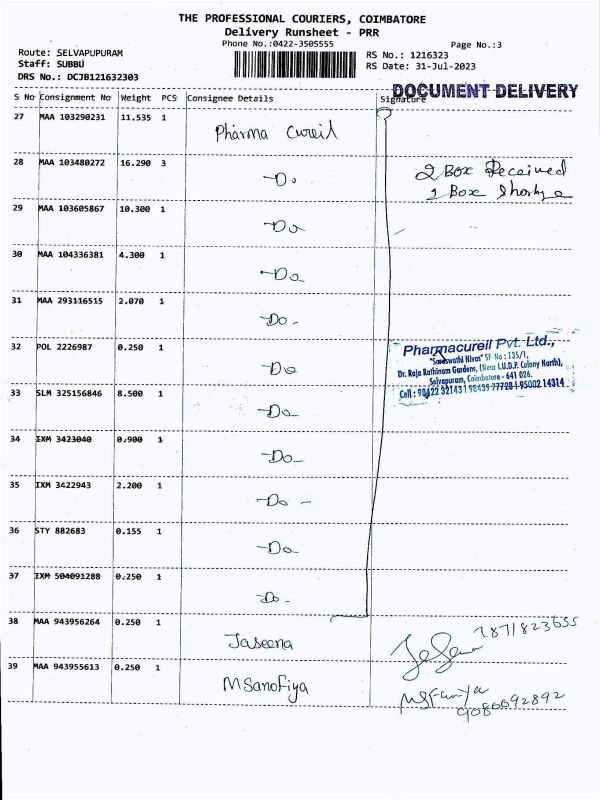 THE PROFESSIONAL COURIERS, COIMBATORE
Delivery Runsheet - PRR
Phone No.:0422-3505555 Page No.:3
Route: SELVAPUPURAM RS No.: 1216323
Staff: SUBBU RS Date: 31-Jul-2023
DRS No.: DCJB121632303
DOCUMENT DELIVERY
S No Consignment No Weight PCS Consignee Details Signature
27 MAA 103290231 11.535 1 Pharma Cureil
28 MAA 103480272 16.290 3 -Do 2 Box Received
1 Box Shortage
29 MAA 103605867 10.300 1 -Do
30 MAA 104336381 4.300 1 -Do
31 MAA 293116515 2.070 1 -Do-
32 POL 2226987 0.250 1 -Do
Pharmacureil Pvt. Ltd.,
"Saraswathi Nivas" SF No : 135/1,
Dr. Raja Rathinam Gardens, (Near I.U.D.P. Colony North),
Selvapuram, Coimbatore - 641 026.
Cell : 98422 32143 | 98439 77728 | 95002 14314
33 SLM 325156846 8.500 1 -Do
34 IXM 3423040 0.900 1 -Do-
35 IXM 3422943 2.200 1 -Do -
36 STY 882683 0.155 1 -Do
37 IXM 504091288 0.250 1 -Do-
38 MAA 943956264 0.250 1 Jaseena 7871823655
39 MAA 943955613 0.250 1 M Sanofiya
9080092892